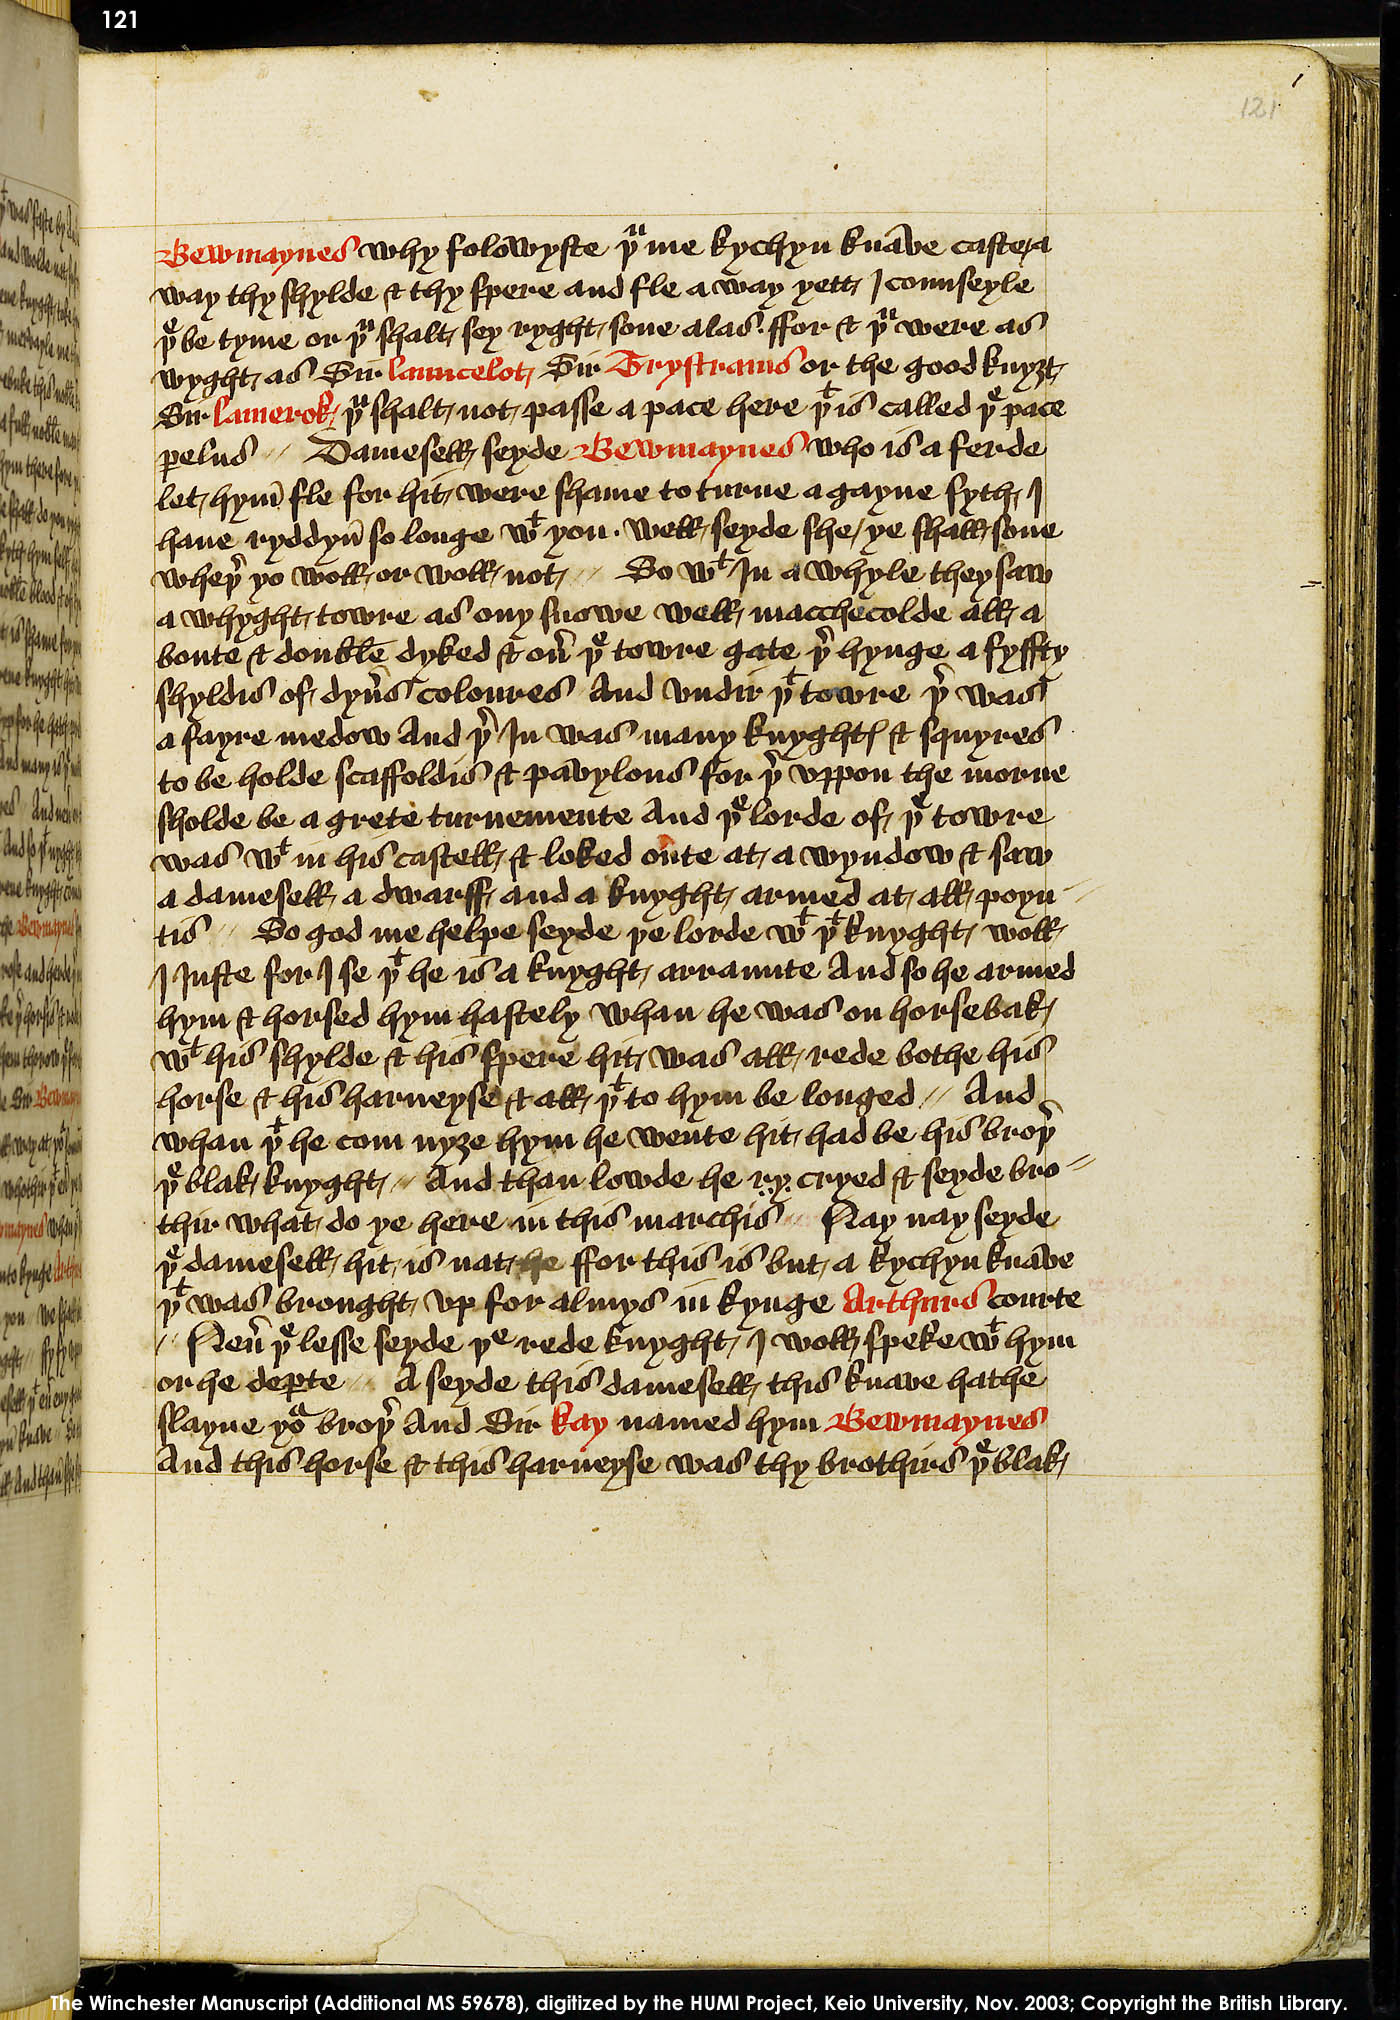 121
121
Bewmaynes why folowyste þu me kychyn knave caste a
way thy shylde & thy spere and fle a way yett I counseyle
þe be tyme or þu shalt sey ryght sone alas. ffor & þu were as
wyght as Sir launcelot Sir Trystrams or the good knyȝt
Sir lamerok þu shalt not passe a pace here þt is called þe pace
pelus // Damesell seyde Bewmaynes who is a ferde
let hym fle for hit were shame to turne a gayne syth I
haue ryddyn so longe wt you. Well seyde she / ye shall sone
wheþr yo woll or woll not // So wt In a whyle they saw
a whyght towre as ony snowe well macchecolde all a
boute & double dyked & ou̾ þe towre gate þr hynge a fyffty
shyldis of dyu̾s coloures And vndir þt towre þr was
a fayre medow And þr In was many knyghtꝭ & squyres
to be holde scaffoldis & pavylons for þr vppon the morne
sholde be a grete turnemente And þe lorde of þe towre
was wt in his castell & loked oute at a wyndow & saw
a damesell a dwarff and a knyght armed at all poyn
tis // So god me helpe seyde þe lorde wt þt knyght woll
I Iuste for I se þt he is a knyght arraunte And so he armed
hym & horsed hym hastely whan he was on horsebak
wt his shylde & his spere hit was all rede bothe his
horse & his harneyse & all þt to hym be longed // And
whan þt he com nyȝe hym he wente hit had be his broþr
þe blak knyght // And than lowde he ry cryed & seyde bro=
thir what do ye here in this marchis // Nay nay seyde
þe damesell hit is nat he ffor this is but a kychyn knave
þt was brought vp for almys in kynge Arthurs courte
// Neu̾ þe lesse seyde þe rede knyght I woll speke wt hym
or he deꝑte // A seyde this damesell this knave hathe
slayne yor broþr And Sir kay named hym Bewmaynes
And this horse & this harneyse was thy brothirs þe blak
The Winchester Manuscript (Additional MS 59678), digitized by the HUMI Project, Keio University, Nov. 2003; Copyright the British Library.